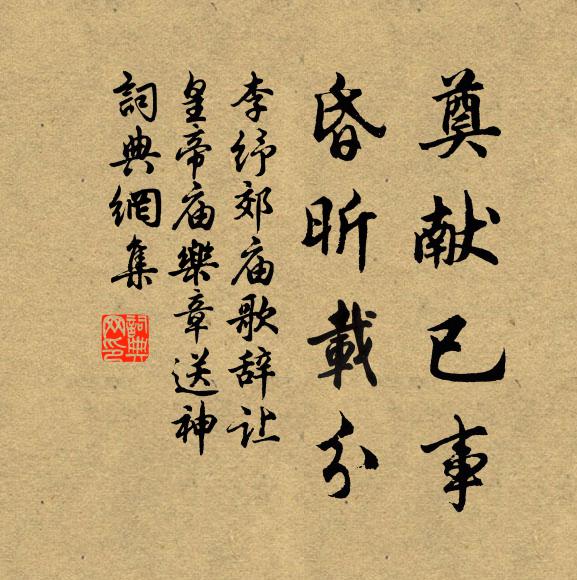 奠献已事
昏昕載分
李纾郊庙歌辞让
皇帝庙樂章送神
詞典網集
詞典
网印